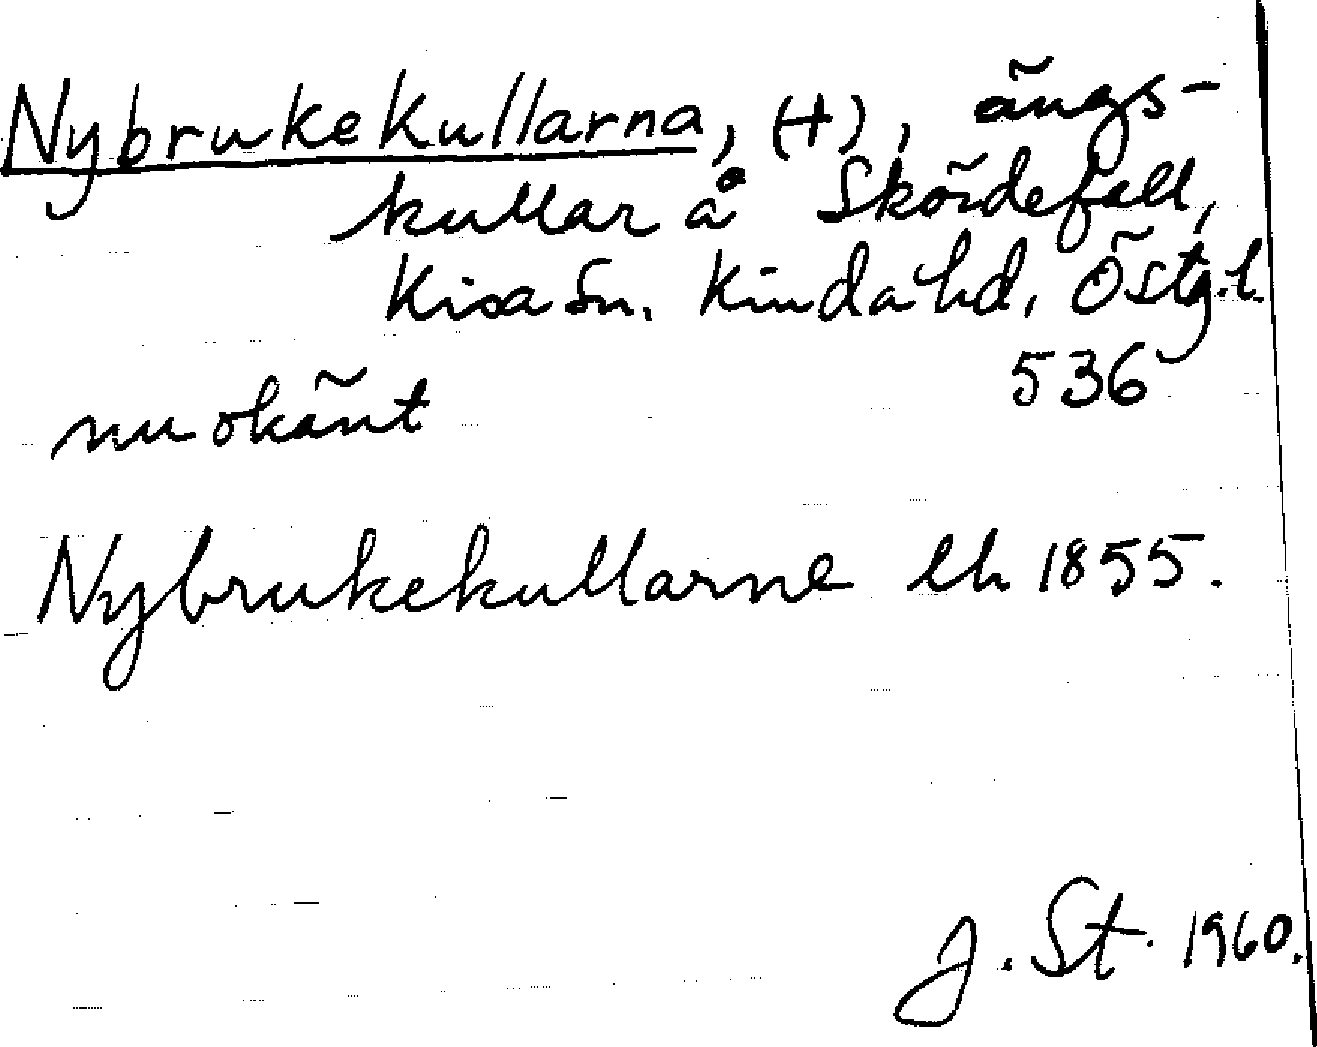 Nybrukekullarna, (†), ängs-
kullar å Sköldefall,
Kisa sn. Kinda hd, Östg.l.
536
nu okänt
Nybrukekullarne lh 1855.
J. St. 1960.